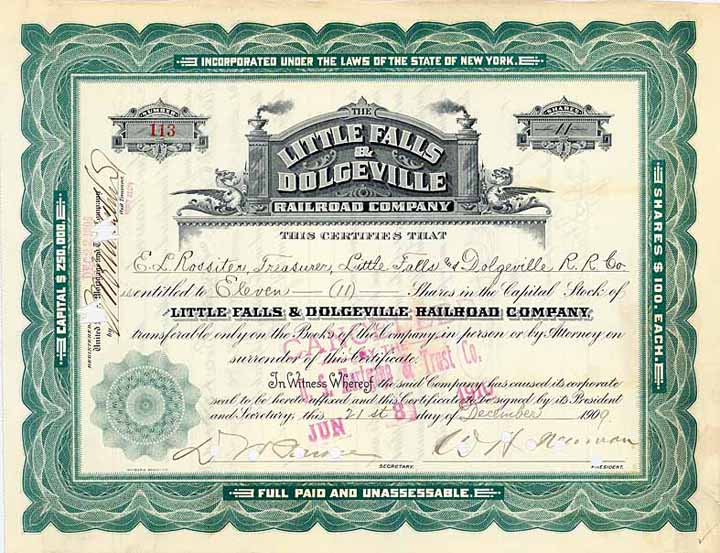 INCORPORATED UNDER THE LAWS OF THE STATE OF NEW YORK.
NUMBER
113
SHARES
11
THE
LITTLE FALLS
&
DOLGEVILLE
RAILROAD COMPANY
THIS CERTIFIES THAT
E. L. Rossiter, Treasurer, Little Falls and Dolgeville R. R. Co.
is entitled to Eleven (11) Shares in the Capital Stock of
LITTLE FALLS & DOLGEVILLE RAILROAD COMPANY,
transferable only on the Books of the Company, in person or by Attorney on
surrender of this Certificate.
In Witness Whereof, the said Company has caused its corporate
seal to be hereto affixed and this Certificate to be signed by its President
and Secretary, this 21st day of December 1909
SECRETARY.
PRESIDENT.
CANCELLED
& Trust Co.
JUN
CAPITAL $ 250,000.
SHARES $ 100. EACH.
REGISTERED
United
Mortgage and Trust Company
FULL PAID AND UNASSESSABLE.